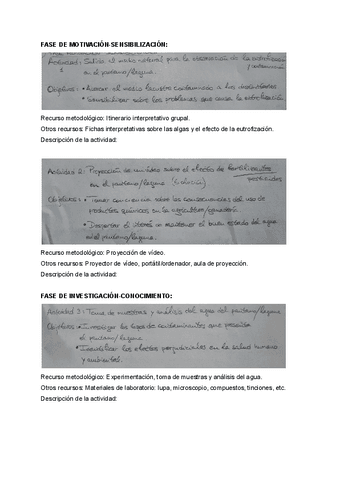 FASE DE MOTIVACIÓN-SENSIBILIZACIÓN:
Actividad: Salida al medio natural para la observación de la eutrofización
1 y contaminación
en el pantano/laguna.
Objetivos: • Acercar el medio lacustre contaminado a los
• Sensibilizar sobre los problemas que causa la eutrofización
Recurso metodológico: Itinerario interpretativo grupal.
Otros recursos: Fichas interpretativas sobre las algas y el efecto de la eutrofización.
Descripción de la actividad:
Actividad 2: Proyección de un vídeo sobre el efecto de fertilizantes
pesticidas
en el pantano/laguna
Objetivos: • Tomar conciencia sobre las consecuencias del uso de
productos químicos en la agricultura/ganadería.
• Despertar el interés en mantener el buen estado del agua
en el pantano/laguna.
Recurso metodológico: Proyección de vídeo.
Otros recursos: Proyector de vídeo, portátil/ordenador, aula de proyección.
Descripción de la actividad:
FASE DE INVESTIGACIÓN-CONOCIMIENTO:
Actividad 3: Toma de muestras y análisis del agua del pantano/laguna
Objetivos: • Investigar los tipos de contaminantes que presenta
el pantano/laguna
• los efectos perjudiciales en la salud humana
y ambiental.
Recurso metodológico: Experimentación, toma de muestras y análisis del agua.
Otros recursos: Materiales de laboratorio: lupa, microscopio, compuestos, tinciones, etc.
Descripción de la actividad: